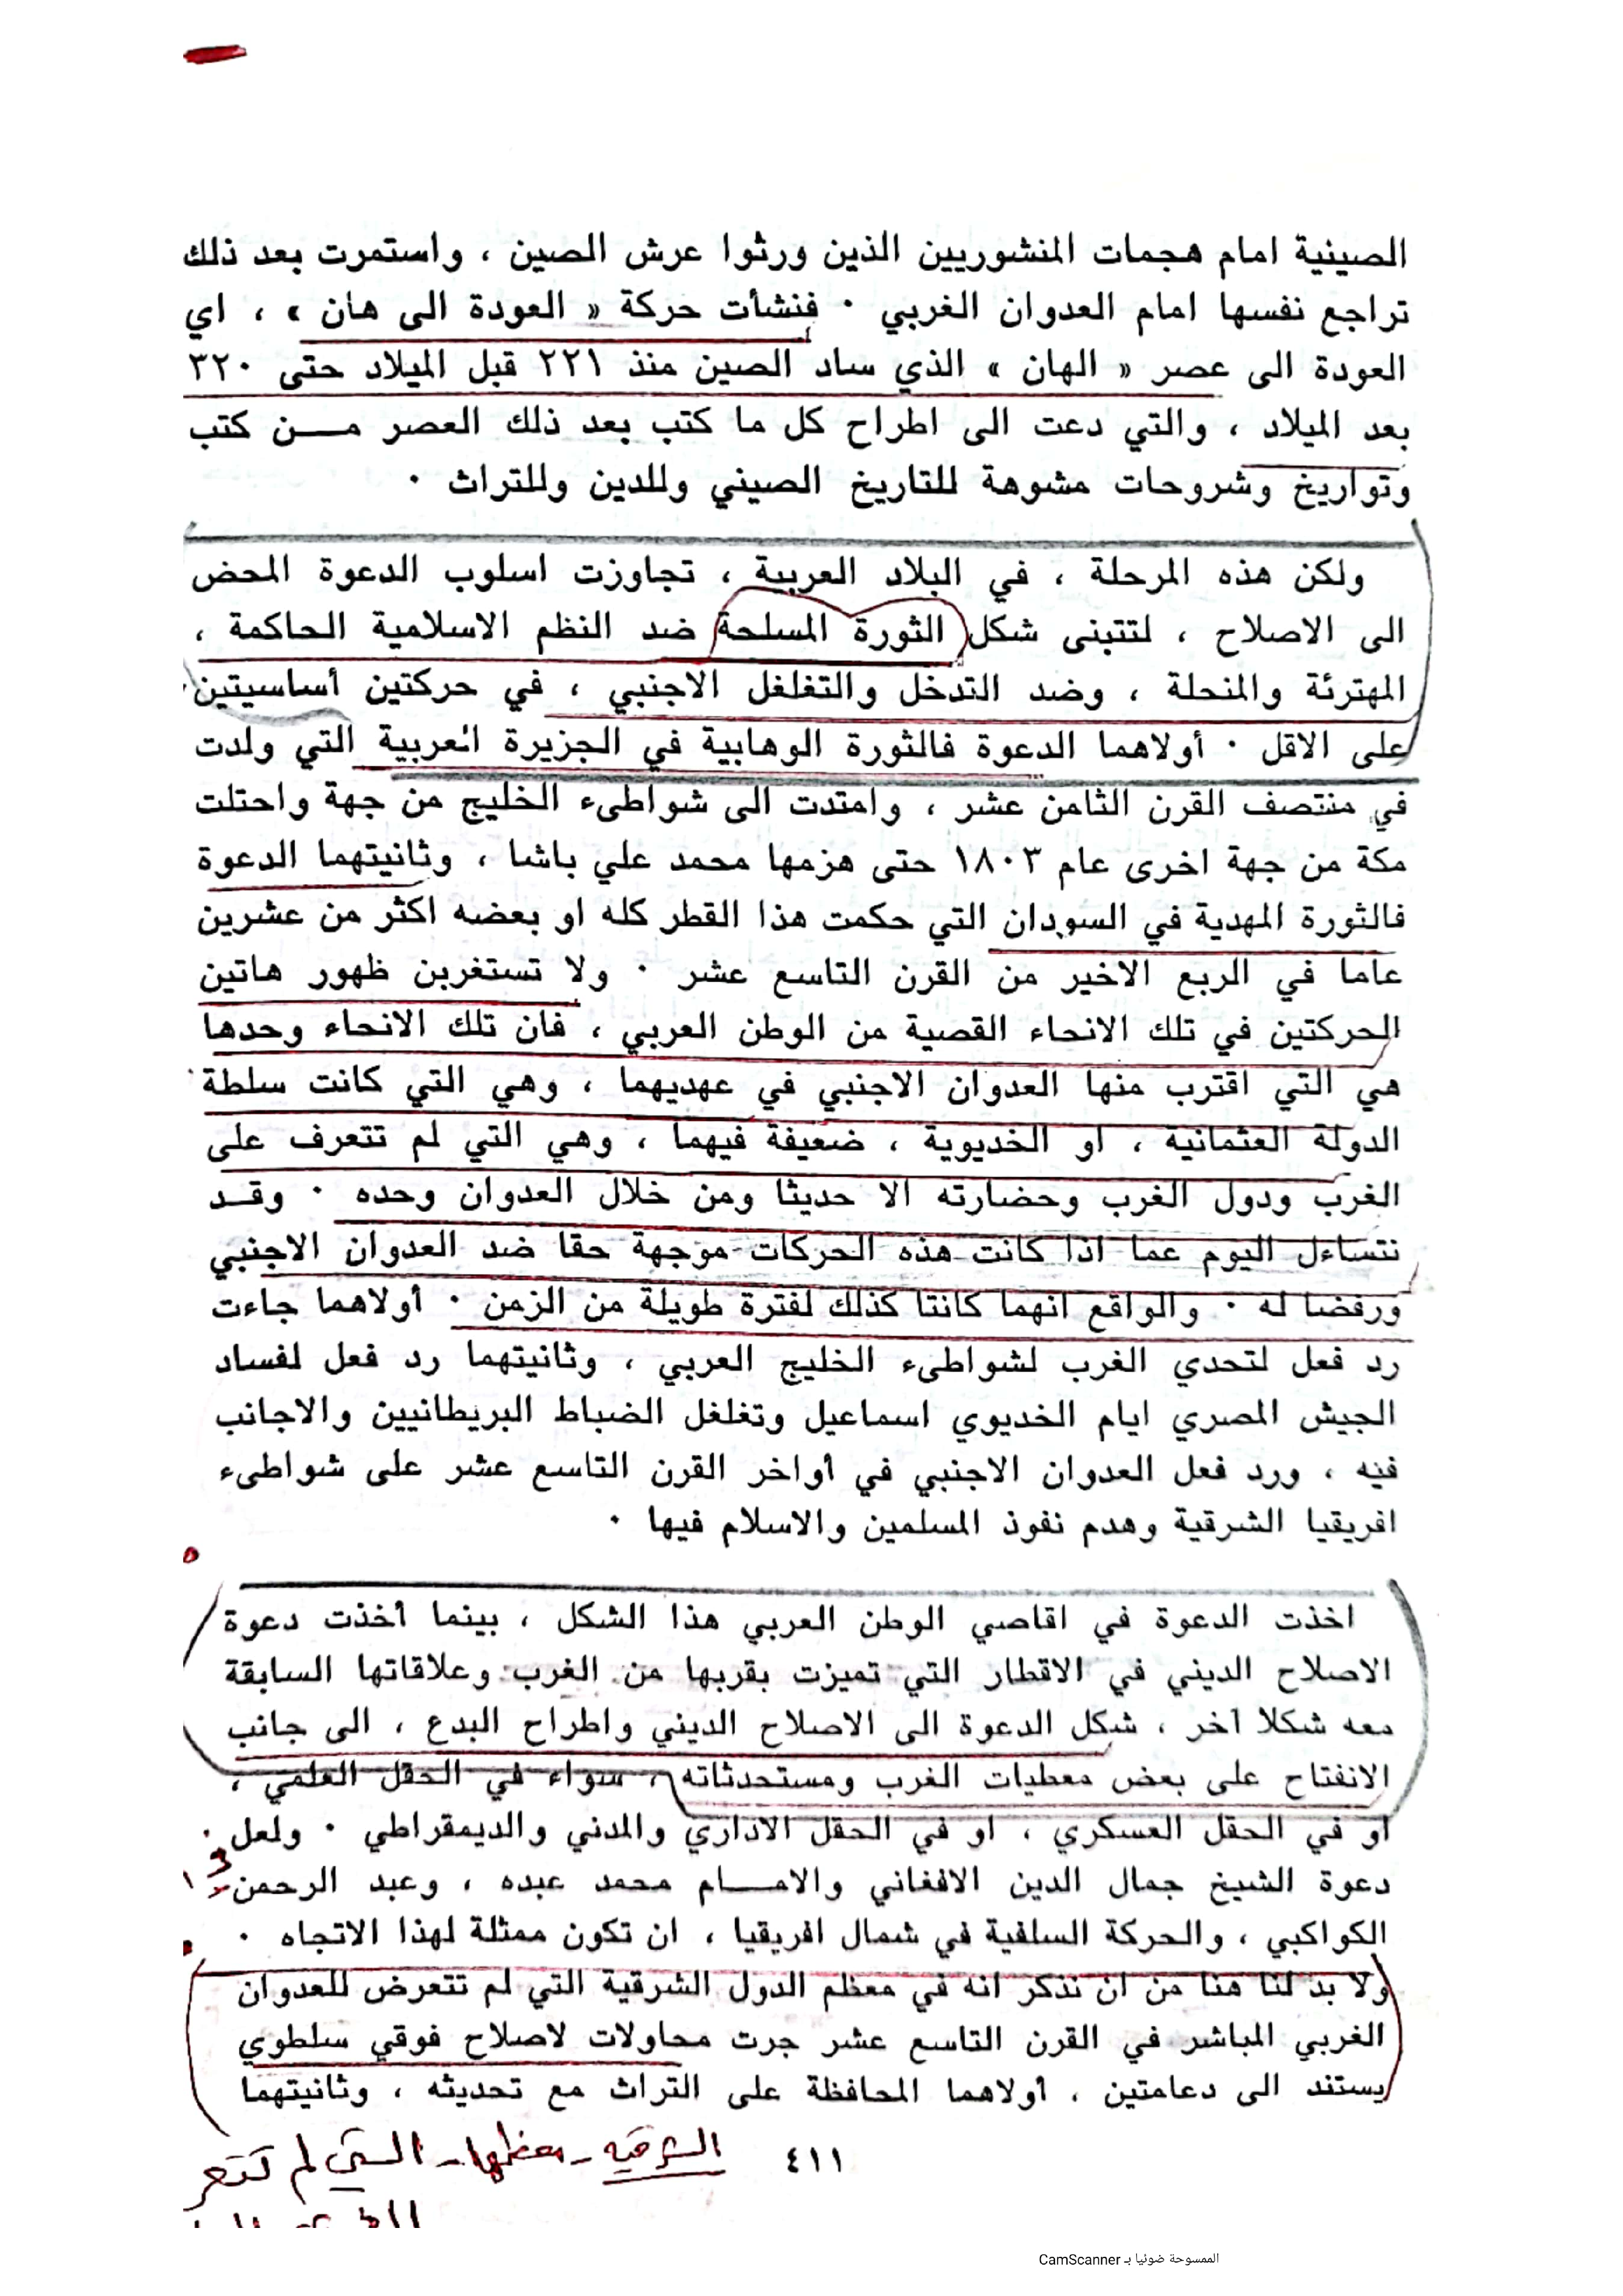 الصينية امام هجمات المنشوريين الذين ورثوا عرش الصين ، واستمرت بعد ذلك
تراجع نفسها امام العدوان الغربي ٠ فنشأت حركة « العودة الى هان » ، اي
العودة الى عصر « الهان » الذي ساد الصين منذ ٢٢١ قبل الميلاد حتى ٣٢٠
بعد الميلاد ، والتي دعت الى اطراح كل ما كتب بعد ذلك العصر مـــن كتب
وتواريخ وشروحات مشوهة للتاريخ الصيني وللدين وللتراث ٠
ولكن هذه المرحلة ، في البلاد العربية ، تجاوزت اسلوب الدعوة المحض
الى الاصلاح ، لتتبنى شكل الثورة المسلحة ضد النظم الاسلامية الحاكمة ،
المهترئة والمنحلة ، وضد التدخل والتغلغل الاجنبي ، في حركتين أساسيتين
على الاقل ٠ أولاهما الدعوة فالثورة الوهابية في الجزيرة العربية التي ولدت
في منتصف القرن الثامن عشر ، وامتدت الى شواطىء الخليج من جهة واحتلت
مكة من جهة اخرى عام ١٨٠٣ حتى هزمها محمد علي باشا ، وثانيتهما الدعوة
فالثورة المهدية في السودان التي حكمت هذا القطر كله او بعضه اكثر من عشرين
عاما في الربع الاخير من القرن التاسع عشر ٠ ولا تستغربن ظهور هاتين
الحركتين في تلك الانحاء القصية من الوطن العربي ، فان تلك الانحاء وحدها
هي التي اقترب منها العدوان الاجنبي في عهديهما ، وهي التي كانت سلطة
الدولة العثمانية ، او الخديوية ، ضعيفة فيهما ، وهي التي لم تتعرف على
الغرب ودول الغرب وحضارته الا حديثا ومن خلال العدوان وحده ٠ وقــد
نتساءل اليوم عما اذا كانت هذه الحركات موجهة حقا ضد العدوان الاجنبي
ورفضا له ٠ والواقع انهما كانتا كذلك لفترة طويلة من الزمن ٠ أولاهما جاءت
رد فعل لتحدي الغرب لشواطىء الخليج العربي ، وثانيتهما رد فعل لفساد
الجيش المصري ايام الخديوي اسماعيل وتغلغل الضباط البريطانيين والاجانب
فيه ، ورد فعل العدوان الاجنبي في أواخر القرن التاسع عشر على شواطىء
افريقيا الشرقية وهدم نفوذ المسلمين والاسلام فيها ٠
اخذت الدعوة في اقاصي الوطن العربي هذا الشكل ، بينما أخذت دعوة
الاصلاح الديني في الاقطار التي تميزت بقربها من الغرب وعلاقاتها السابقة
معه شكلا آخر ، شكل الدعوة الى الاصلاح الديني واطراح البدع ، الى جانب
الانفتاح على بعض معطيات الغرب ومستحدثاته ، سواء في الحقل العلمي ،
او في الحقل العسكري ، او في الحقل الاداري والمدني والديمقراطي ٠ ولعل
دعوة الشيخ جمال الدين الافغاني والامـــام محمد عبده ، وعبد الرحمن
الكواكبي ، والحركة السلفية في شمال افريقيا ، ان تكون ممثلة لهذا الاتجاه ٠
ولا بد لنا هنا من ان نذكر انه في معظم الدول الشرقية التي لم تتعرض للعدوان
الغربي المباشر في القرن التاسع عشر جرت محاولات لاصلاح فوقي سلطوي
يستند الى دعامتين ، أولاهما المحافظة على التراث مع تحديثه ، وثانيتهما
٤١١
الشرقيه - معظمها - التي لم تتعر
الممسوحة ضوئيا بـ CamScanner